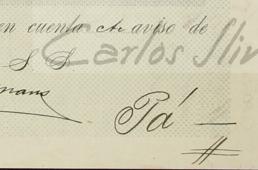 en cuenta de aviso de
Carlos Sliv
S S
Pá —